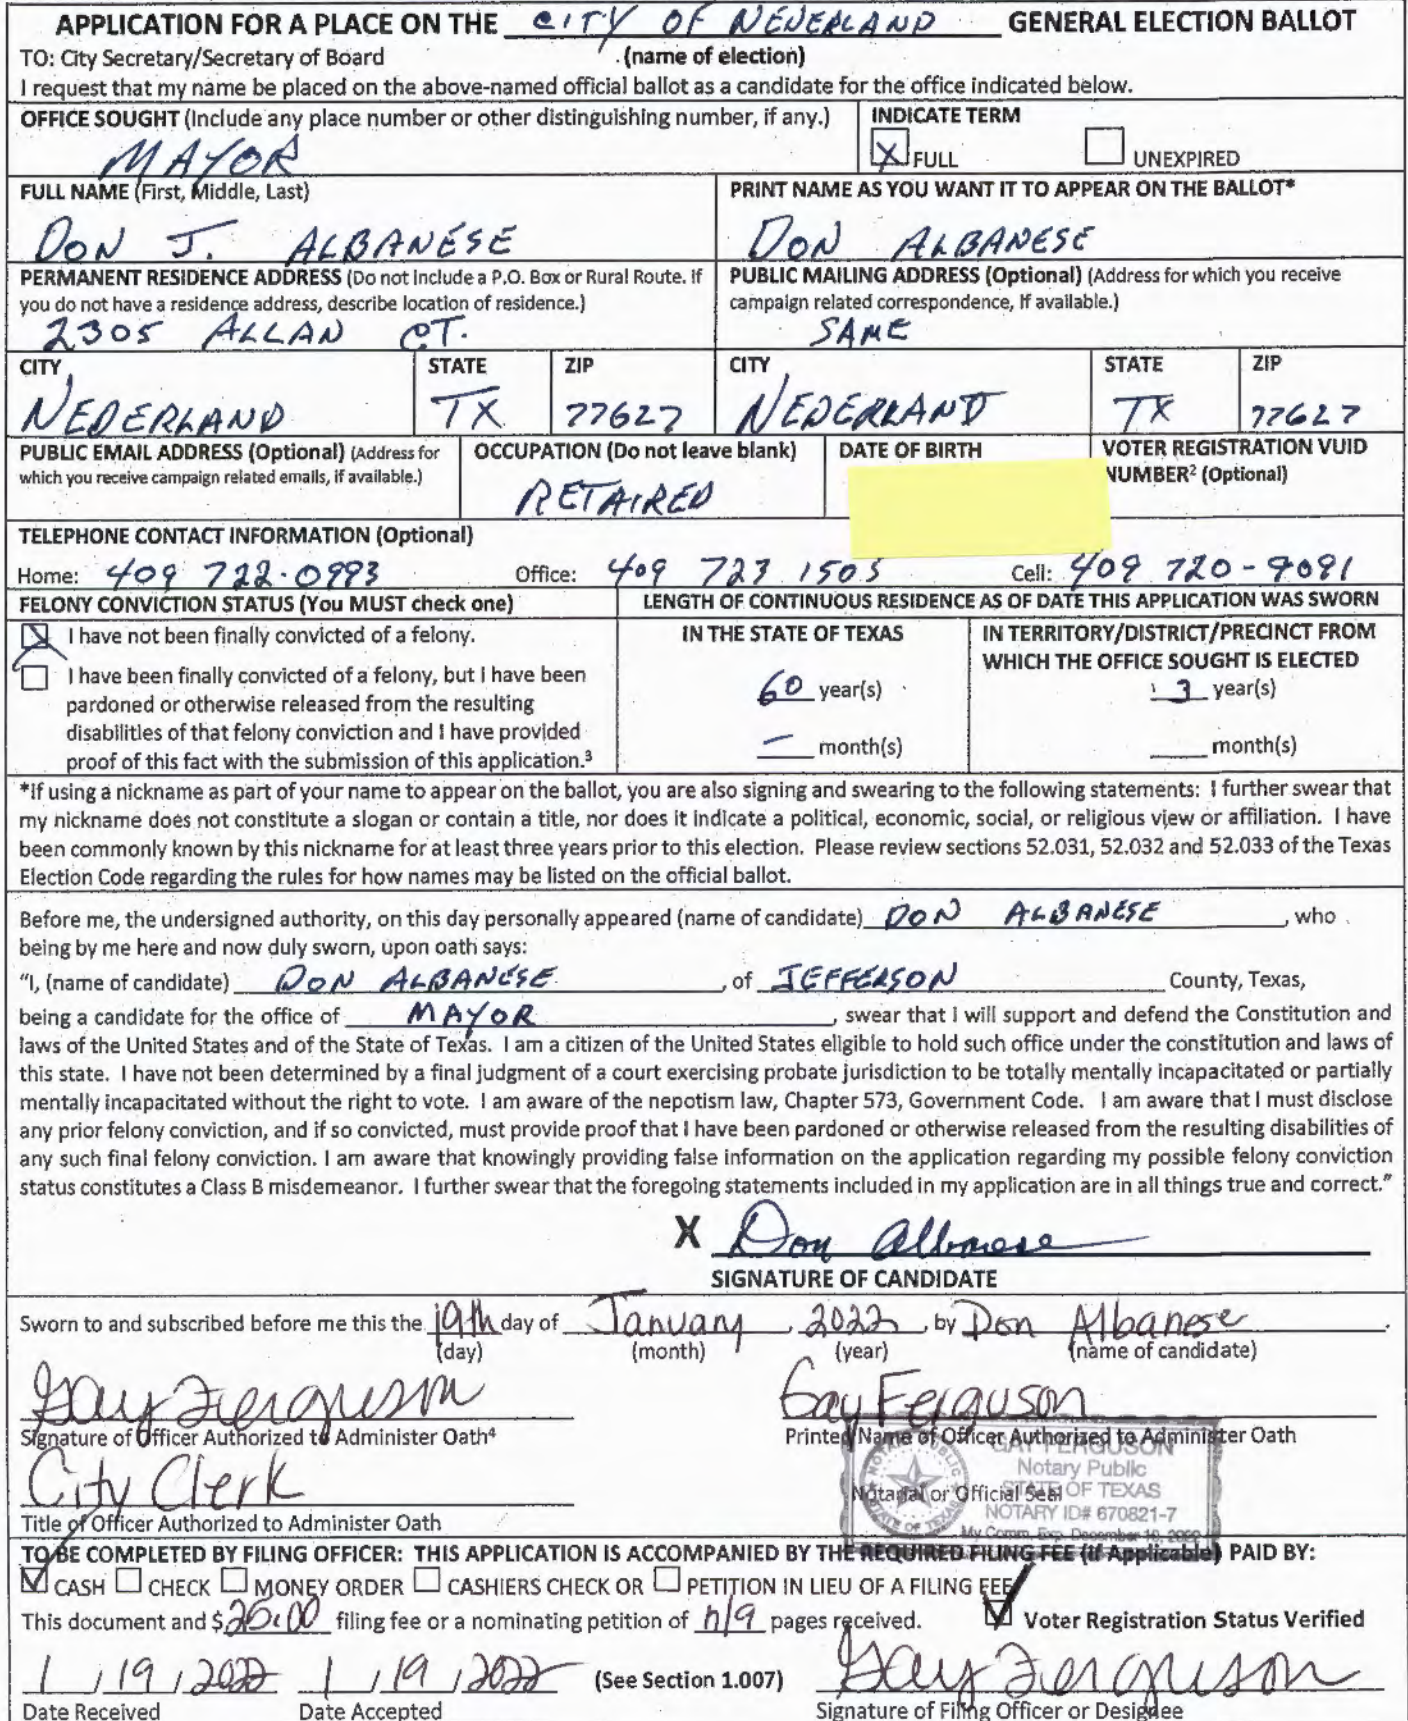 APPLICATION FOR A PLACE ON THE CITY OF NEDERLAND GENERAL ELECTION BALLOT
TO: City Secretary/Secretary of Board (name of election)
I request that my name be placed on the above-named official ballot as a candidate for the office indicated below.
OFFICE SOUGHT (Include any place number or other distinguishing number, if any.) INDICATE TERM
MAYOR X FULL UNEXPIRED
FULL NAME (First, Middle, Last) PRINT NAME AS YOU WANT IT TO APPEAR ON THE BALLOT*
DON J. ALBANESE DON ALBANESE
PERMANENT RESIDENCE ADDRESS (Do not include a P.O. Box or Rural Route. If you do not have a residence address, describe location of residence.)
2305 ALLAN CT.
PUBLIC MAILING ADDRESS (Optional) (Address for which you receive campaign related correspondence, if available.)
SAME
CITY STATE ZIP CITY STATE ZIP
NEDERLAND TX 77627 NEDERLAND TX 77627
PUBLIC EMAIL ADDRESS (Optional) (Address for which you receive campaign related emails, if available.)
OCCUPATION (Do not leave blank)
RETAIRED
DATE OF BIRTH
VOTER REGISTRATION VUID NUMBER² (Optional)
TELEPHONE CONTACT INFORMATION (Optional)
Home: 409 722-0993 Office: 409 723 1505 Cell: 409 720-9091
FELONY CONVICTION STATUS (You MUST check one)
X I have not been finally convicted of a felony.
I have been finally convicted of a felony, but I have been
pardoned or otherwise released from the resulting
disabilities of that felony conviction and I have provided
proof of this fact with the submission of this application.³
LENGTH OF CONTINUOUS RESIDENCE AS OF DATE THIS APPLICATION WAS SWORN
IN THE STATE OF TEXAS
60 year(s)
— month(s)
IN TERRITORY/DISTRICT/PRECINCT FROM
WHICH THE OFFICE SOUGHT IS ELECTED
3 year(s)
month(s)
*If using a nickname as part of your name to appear on the ballot, you are also signing and swearing to the following statements: I further swear that
my nickname does not constitute a slogan or contain a title, nor does it indicate a political, economic, social, or religious view or affiliation. I have
been commonly known by this nickname for at least three years prior to this election. Please review sections 52.031, 52.032 and 52.033 of the Texas
Election Code regarding the rules for how names may be listed on the official ballot.
Before me, the undersigned authority, on this day personally appeared (name of candidate) DON ALBANESE, who
being by me here and now duly sworn, upon oath says:
"I, (name of candidate) DON ALBANESE, of JEFFERSON County, Texas,
being a candidate for the office of MAYOR, swear that I will support and defend the Constitution and
laws of the United States and of the State of Texas. I am a citizen of the United States eligible to hold such office under the constitution and laws of
this state. I have not been determined by a final judgment of a court exercising probate jurisdiction to be totally mentally incapacitated or partially
mentally incapacitated without the right to vote. I am aware of the nepotism law, Chapter 573, Government Code. I am aware that I must disclose
any prior felony conviction, and if so convicted, must provide proof that I have been pardoned or otherwise released from the resulting disabilities of
any such final felony conviction. I am aware that knowingly providing false information on the application regarding my possible felony conviction
status constitutes a Class B misdemeanor. I further swear that the foregoing statements included in my application are in all things true and correct."
X Don Albanese
SIGNATURE OF CANDIDATE
Sworn to and subscribed before me this the 19th day of January, 2022, by Don Albanese.
(day) (month) (year) (name of candidate)
Gay Ferguson Gay Ferguson
Signature of Officer Authorized to Administer Oath⁴ Printed Name of Officer Authorized to Administer Oath
City Clerk
Title of Officer Authorized to Administer Oath
Notarial or Official Seal
NOTARY PUBLIC
STATE OF TEXAS
GAY FERGUSON
Notary Public
STATE OF TEXAS
NOTARY ID# 670821-7
My Comm. Exp. December
TO BE COMPLETED BY FILING OFFICER: THIS APPLICATION IS ACCOMPANIED BY THE REQUIRED FILING FEE (If Applicable) PAID BY:
CASH CHECK MONEY ORDER CASHIERS CHECK OR PETITION IN LIEU OF A FILING FEE
This document and $25.00 filing fee or a nominating petition of n/a pages received. Voter Registration Status Verified
1/19/2022 1/19/2022 (See Section 1.007) Gay Ferguson
Date Received Date Accepted Signature of Filing Officer or Designee